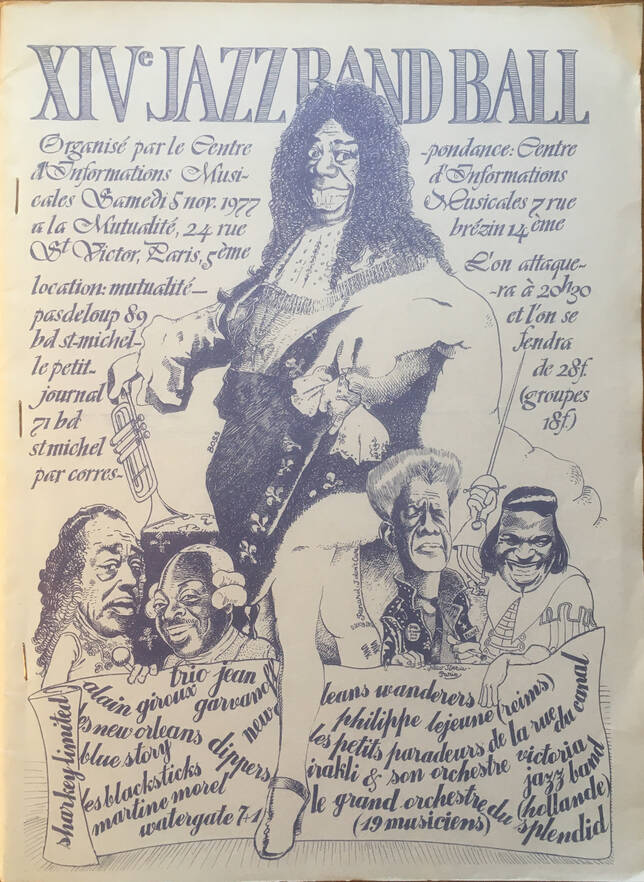 XIVe JAZZ BAND BALL
Organisé par le Centre
d'Informations Musi-
cales Samedi 5 nov. 1977
a la Mutualité, 24 rue
St Victor, Paris, 5ème
location: mutualité—
pasdeloup 89
bd st-michel-
le petit-
journal
71 bd
st michel
par corres-
-pondance: Centre
d'Informations
Musicales 7 rue
brézin 14ème
L'on attaque-
-ra à 20h30
et l'on se
fendra
de 28f.
(groupes
18f.)
BOSS
sharkey limited
alain giroux
trio jean
garvanoff
les new orleans
blue story
dippers
new
les blacksticks
martine morel
watergate 7+1
leans wanderers
philippe lejeune (reims)
les petits paradeurs de la rue
du canal
irakli & son orchestre
victoria
jazz band
(hollande)
le grand orchestre du splendid
(19 musiciens)